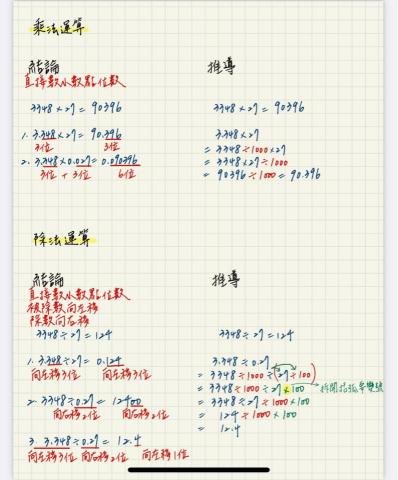 乘法運算
結論
直接數小數點位數
3348 × 27 = 90396
1. 3.348 × 27 = 90.396
3位 3位
2. 3.348 × 0.027 = 0.090396
3位 + 3位 6位
推導
3348 × 27 = 90396
3.348 × 27
= 3348 ÷ 1000 × 27
= 3348 × 27 ÷ 1000
= 90396 ÷ 1000 = 90.396
除法運算
結論
直接數小數點位數
被除數向左移
除數向右移
3348 ÷ 27 = 124
1. 3.348 ÷ 27 = 0.124
向左移3位 向左移3位
2. 3348 ÷ 0.27 = 12400
向右移2位 向右移2位
3. 3.348 ÷ 0.27 = 12.4
向左移3位 向右移2位 向左移1位
推導
3348 ÷ 27 = 124
3.348 ÷ 0.27
= 3348 ÷ 1000 ÷ (27 ÷ 100)
= 3348 ÷ 1000 ÷ 27 × 100 拆開括弧要變號
= 3348 ÷ 27 ÷ 1000 × 100
= 124 ÷ 1000 × 100
= 12.4